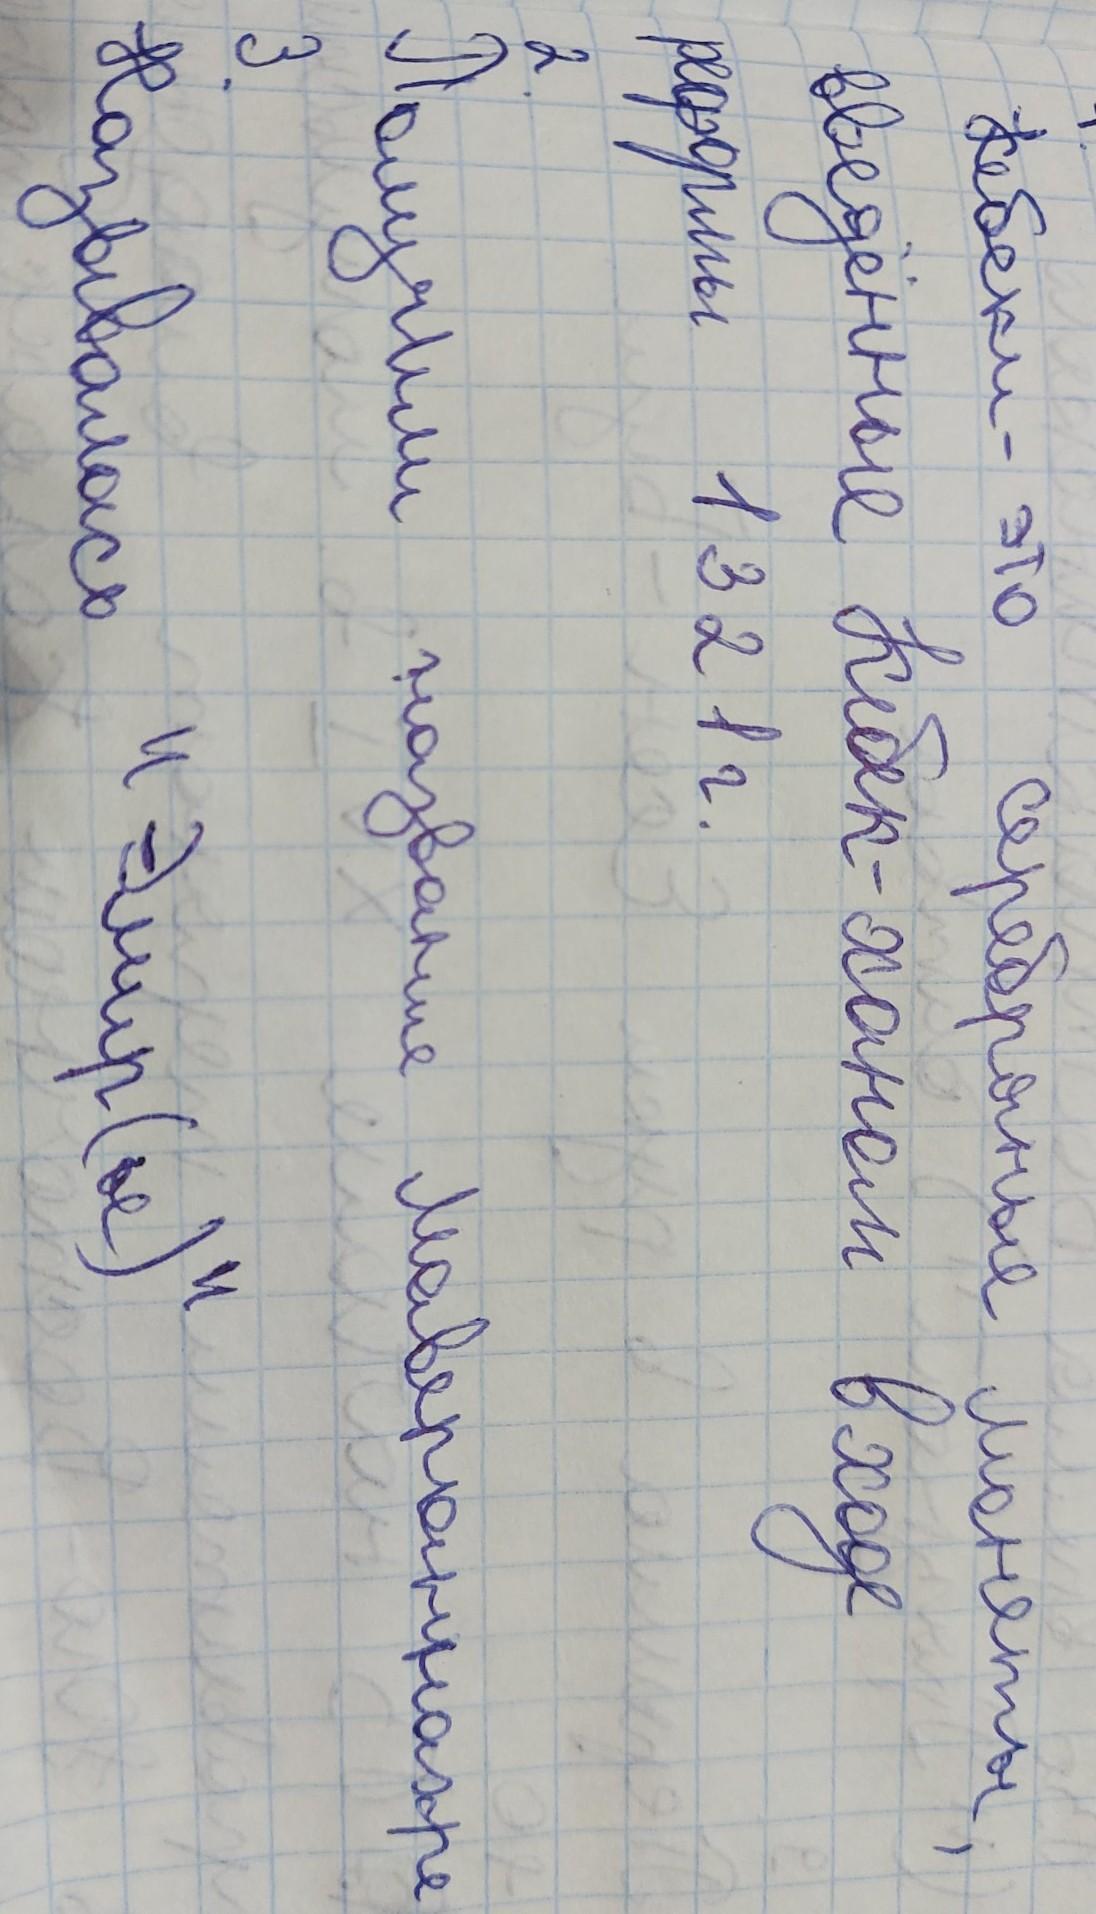 1.
Кебеки - это серебряные монеты,
введённые Кебек-ханом в ходе
реформы 1321г.
2.
Получили название Мавераннахре
3.
Называлась "Эмир(ы)"